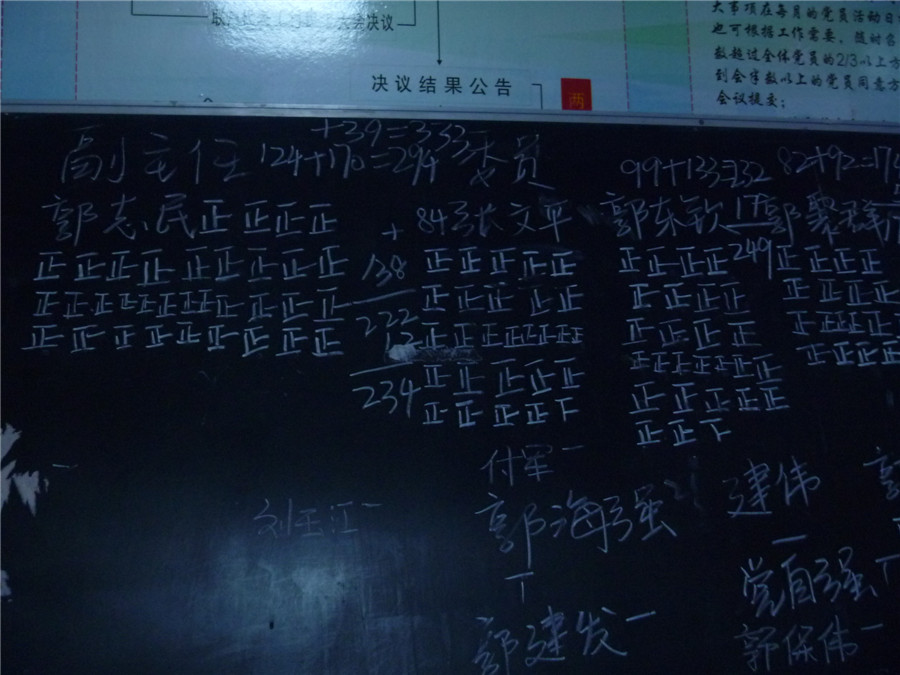 决议结果公告
两
大事项在每月的党员活动日
也可根据工作需要，随时召
数超过全体党员的2/3以上方
到会半数以上的党员同意方
会议提交；
+39=333
副主任 124+170=294 委员
99+133=232 82+92=17
郭志民正正正正
+84张文平
郭东钦 17
249
正正正正正正正正正
138
正正正正正
正正正正
正正正正
正正正正正正正正正正
222
正正正正正
正正正正
正正正正
正正正正正正正正正
12
正正正正正正正
正正正正
正正正正
234
正正正正正
正正正正正正
正正正正
正正正正下
正正正正正
正正下
付军一
刘玉江一
郭海强
建伟
郭
丅
一
党自强
丅
郭建发一
郭保伟一